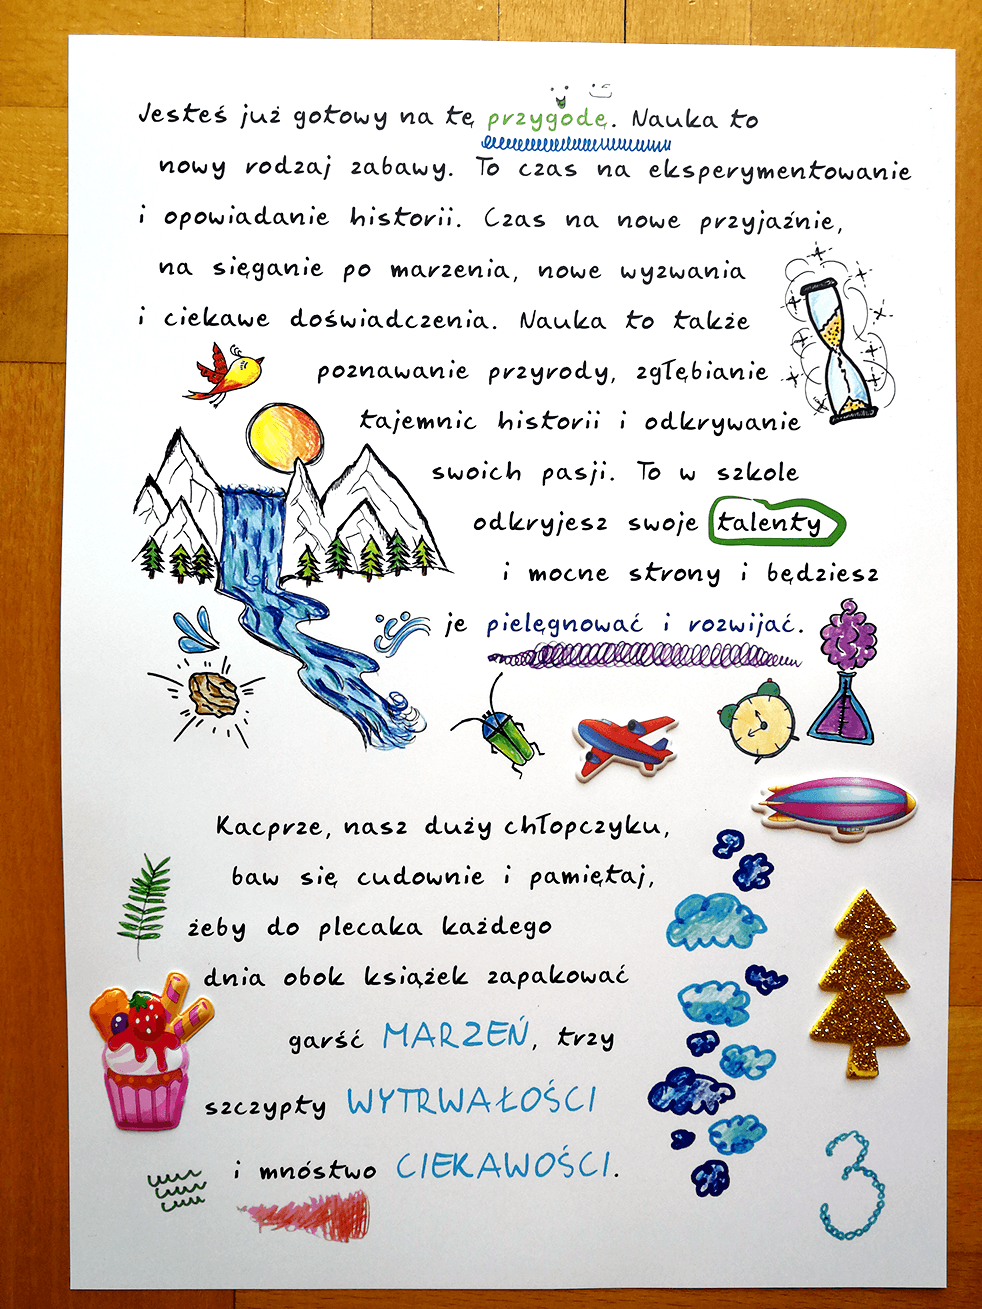 Jesteś już gotowy na tę przygodę. Nauka to
nowy rodzaj zabawy. To czas na eksperymentowanie
i opowiadanie historii. Czas na nowe przyjaźnie,
na sięganie po marzenia, nowe wyzwania
i ciekawe doświadczenia. Nauka to także
poznawanie przyrody, zgłębianie
tajemnic historii i odkrywanie
swoich pasji. To w szkole
odkryjesz swoje talenty
i mocne strony i będziesz
je pielęgnować i rozwijać.
Kacprze, nasz duży chłopczyku,
baw się cudownie i pamiętaj,
żeby do plecaka każdego
dnia obok książek zapakować
garść MARZEŃ, trzy
szczypty WYTRWAŁOŚCI
i mnóstwo CIEKAWOŚCI.
3